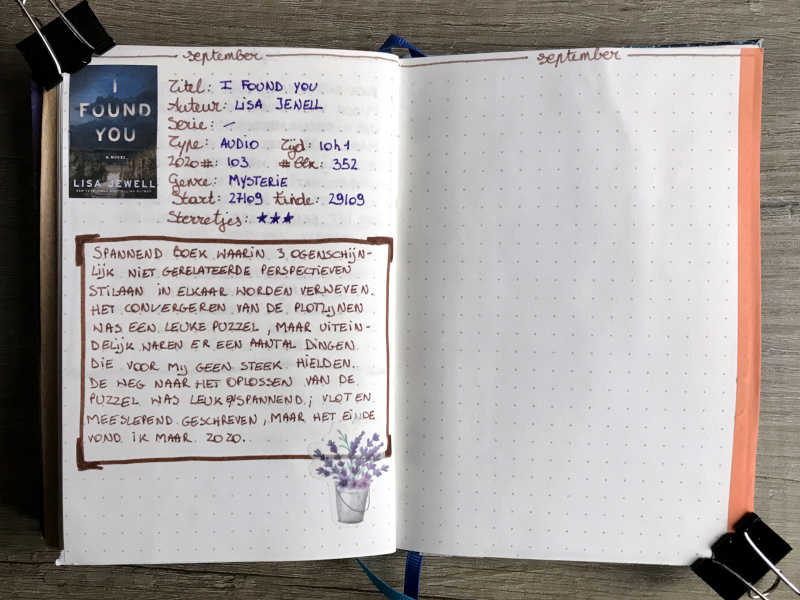 september
I
FOUND
YOU
A NOVEL
LISA JEWELL
Titel: I FOUND YOU
Auteur: LISA JEWELL
Serie: -
Type: AUDIO Tijd: 10h1
2020#: 103 #Blz: 352
Genre: MYSTERIE
Start: 27/09 Einde: 29/09
Sterretjes: ★★★
SPANNEND BOEK WAARIN 3 OGENSCHIJN-
LIJK NIET GERELATEERDE PERSPECTIEVEN
STILAAN IN ELKAAR WORDEN VERWEVEN.
HET CONVERGEREN VAN DE PLOTLIJNEN
WAS EEN LEUKE PUZZEL, MAAR UITEIN-
DELIJK WAREN ER EEN AANTAL DINGEN
DIE VOOR MIJ GEEN STEEK HIELDEN.
DE WEG NAAR HET OPLOSSEN VAN DE
PUZZEL WAS LEUK & SPANNEND; VLOT EN
MEESLEPEND GESCHREVEN, MAAR HET EINDE
VOND IK MAAR ZOZO.
september